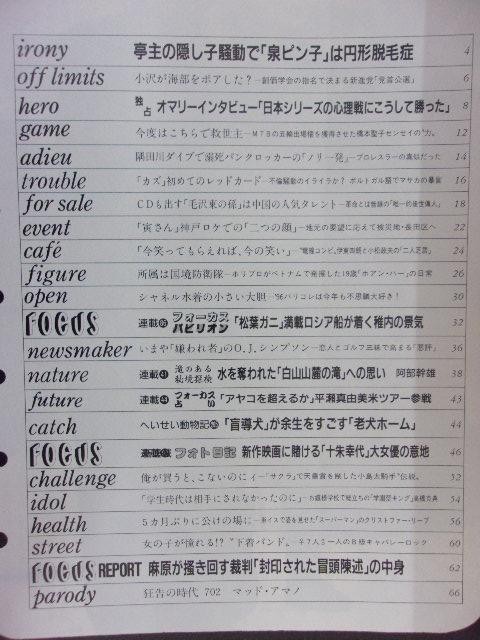 irony 亭主の隠し子騒動で「泉ピン子」は円形脱毛症 4
off limits 小沢が海部をポアした?―創価学会の指名で決まる新進党「党首公選」 6
hero 独占 オマリーインタビュー「日本シリーズの心理戦にこうして勝った」 8
game 今度はこちらで救世主―MTBの五輪出場権を獲得させた橋本聖子センセイの“力” 12
adieu 隅田川ダイブで溺死パンクロッカーの「ノリ一発」―プロレスラーの真似だった 14
trouble 「カズ」初めてのレッドカード―不倫騒動のイライラか? ポルトガル語でマサカの暴言 16
for sale CDも出す「毛沢東の孫」は中国の人気タレント―革命とは無縁の「唯一の後世偉人」 18
event 「寅さん」神戸ロケでの「二つの顔」―地元の要望に応えて被災地・長田区へ 22
café 「今笑ってもらえれば、今の笑い」―“電線コンビ、伊東四朗と小松政夫の「二人芝居」 24
figure 所属は国境防衛隊―ホリプロがベトナムで発掘した19歳「ホアン・ハー」の日常 26
open シャネル水着の小さい大胆―'96パリコレは今年も不思議大好き! 30
FOCUS 連載 フォーカスパビリオン 「松葉ガニ」満載ロシア船が着く稚内の景気 32
newsmaker いまや「嫌われ者」のO.J.シンプソン―恋人とゴルフ三昧で高まる「悪評」 36
nature 連載 滝のある秘境探検 水を奪われた「白山山麓の滝」への思い 阿部幹雄 38
future 連載 フォーカス占い 「アヤコを超えるか」平瀬真由美米ツアー参戦 43
catch へいせい動物記 「盲導犬」が余生をすごす「老犬ホーム」 44
FOCUS 連載 フォト日記 新作映画に賭ける「十朱幸代」大女優の意地 46
challenge 俺が買うと、こないのにィ―「サクラ」で天皇賞を制した小島太騎手“伝説” 52
idol 「学生時代は相手にされなかったのに」―お嬢様学校で総立ちの「学園祭キング」高橋克典 54
health 5カ月ぶりに公けの場に―車イスで姿を見せた「スーパーマン」のクリストファー・リーブ 56
street 女の子が憧れる!? “下着バンド”―♀7人♂一人のB級キャバレーロック 60
FOCUS REPORT 麻原が掻き回す裁判「封印された冒頭陳述」の中身 62
parody 狂告の時代 702 マッド・アマノ 66